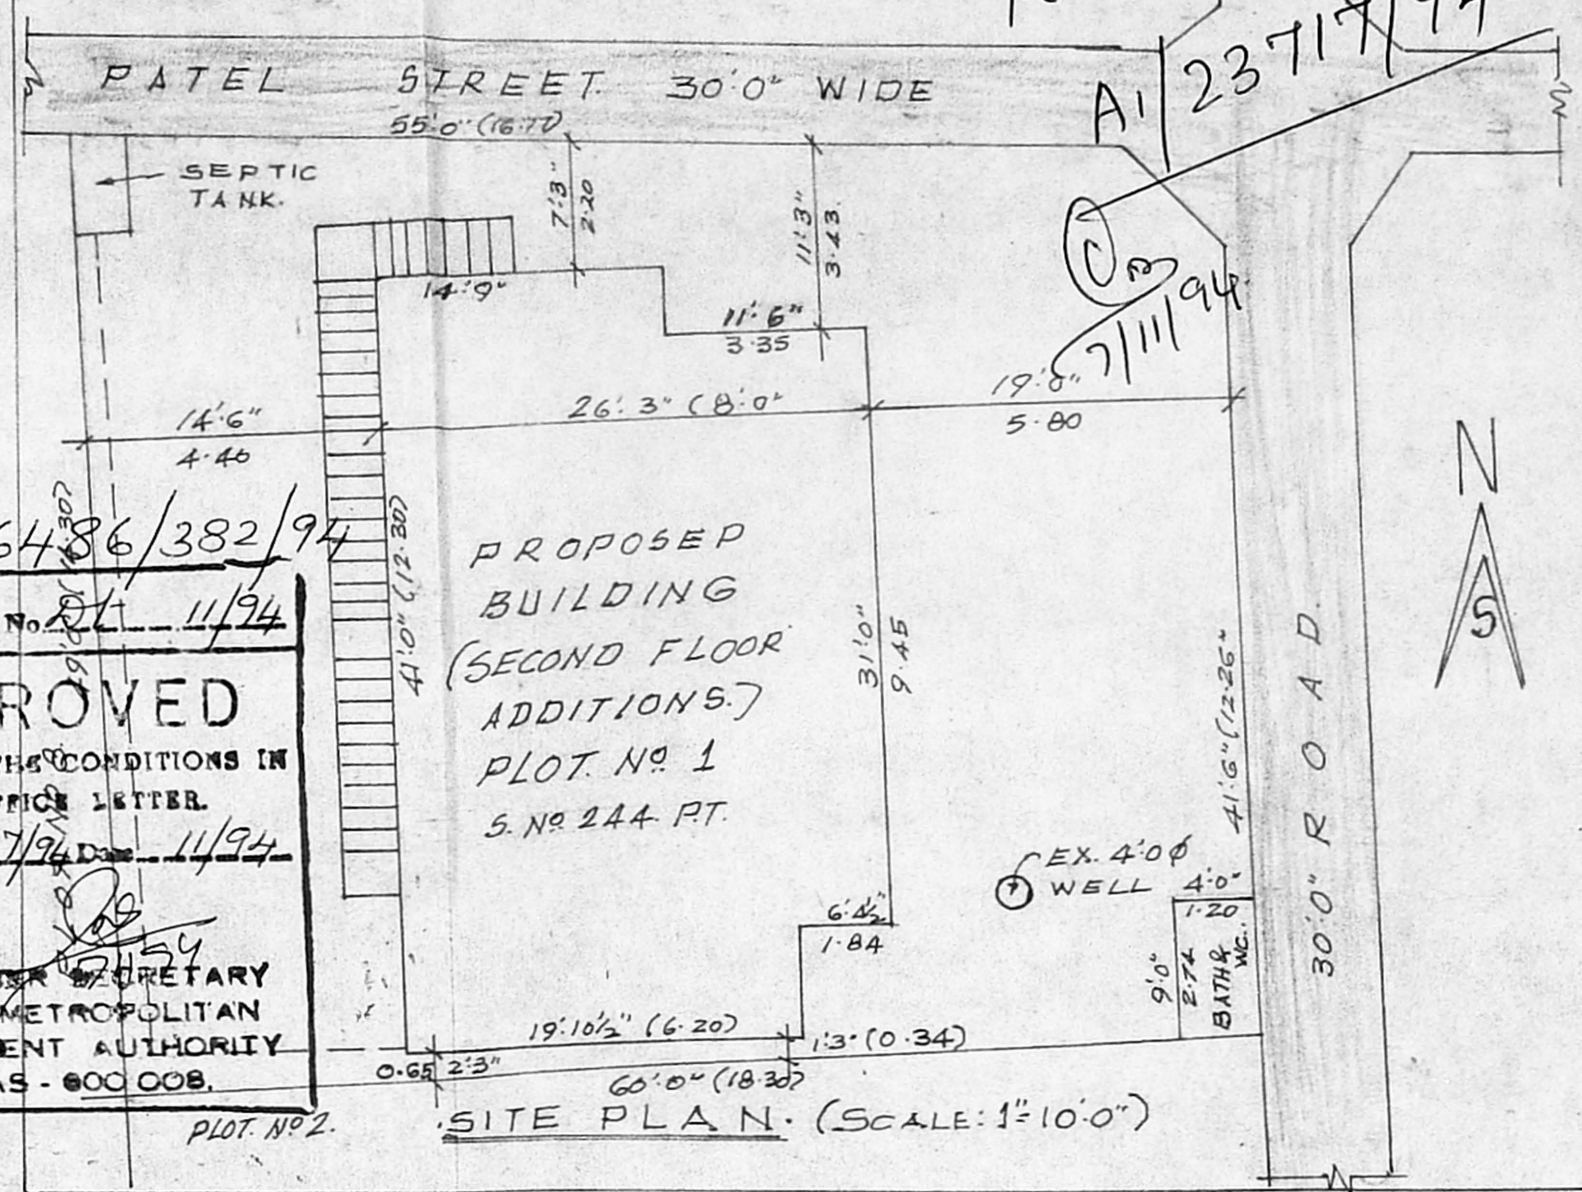 PATEL STREET. 30'0" WIDE
55'0" (16.77)
A1/23717/94
SEPTIC
TANK.
7'3"
2.20
11'3"
3.43
7/11/94
14'9"
11'6"
3.35
19'0"
5.80
26'.3" (8'.0"
14'6"
4.40
N
S
6486/382/94
No. 11/94
ROVED
THE CONDITIONS IN
FFICE LETTER.
7/94 Date 11/94
SECRETARY
METROPOLITAN
ENT AUTHORITY
AS - 600 008.
41'0" (12.30)
PROPOSED
BUILDING
(SECOND FLOOR
ADDITIONS.)
PLOT. No. 1
S. No. 244. PT.
31'0"
9.45
41'.6" (12.26"
30'0" ROAD.
EX. 4'.0 ϕ
WELL
4'.0"
1.20
9'0"
2.74
BATH &
WC.
6'.4½"
1.84
19'.10½" (6.20)
1'.3" (0.34)
0.65 2'3"
60'.0" (18.30)
PLOT. No. 2.
SITE PLAN. (SCALE: 1"=10'.0")